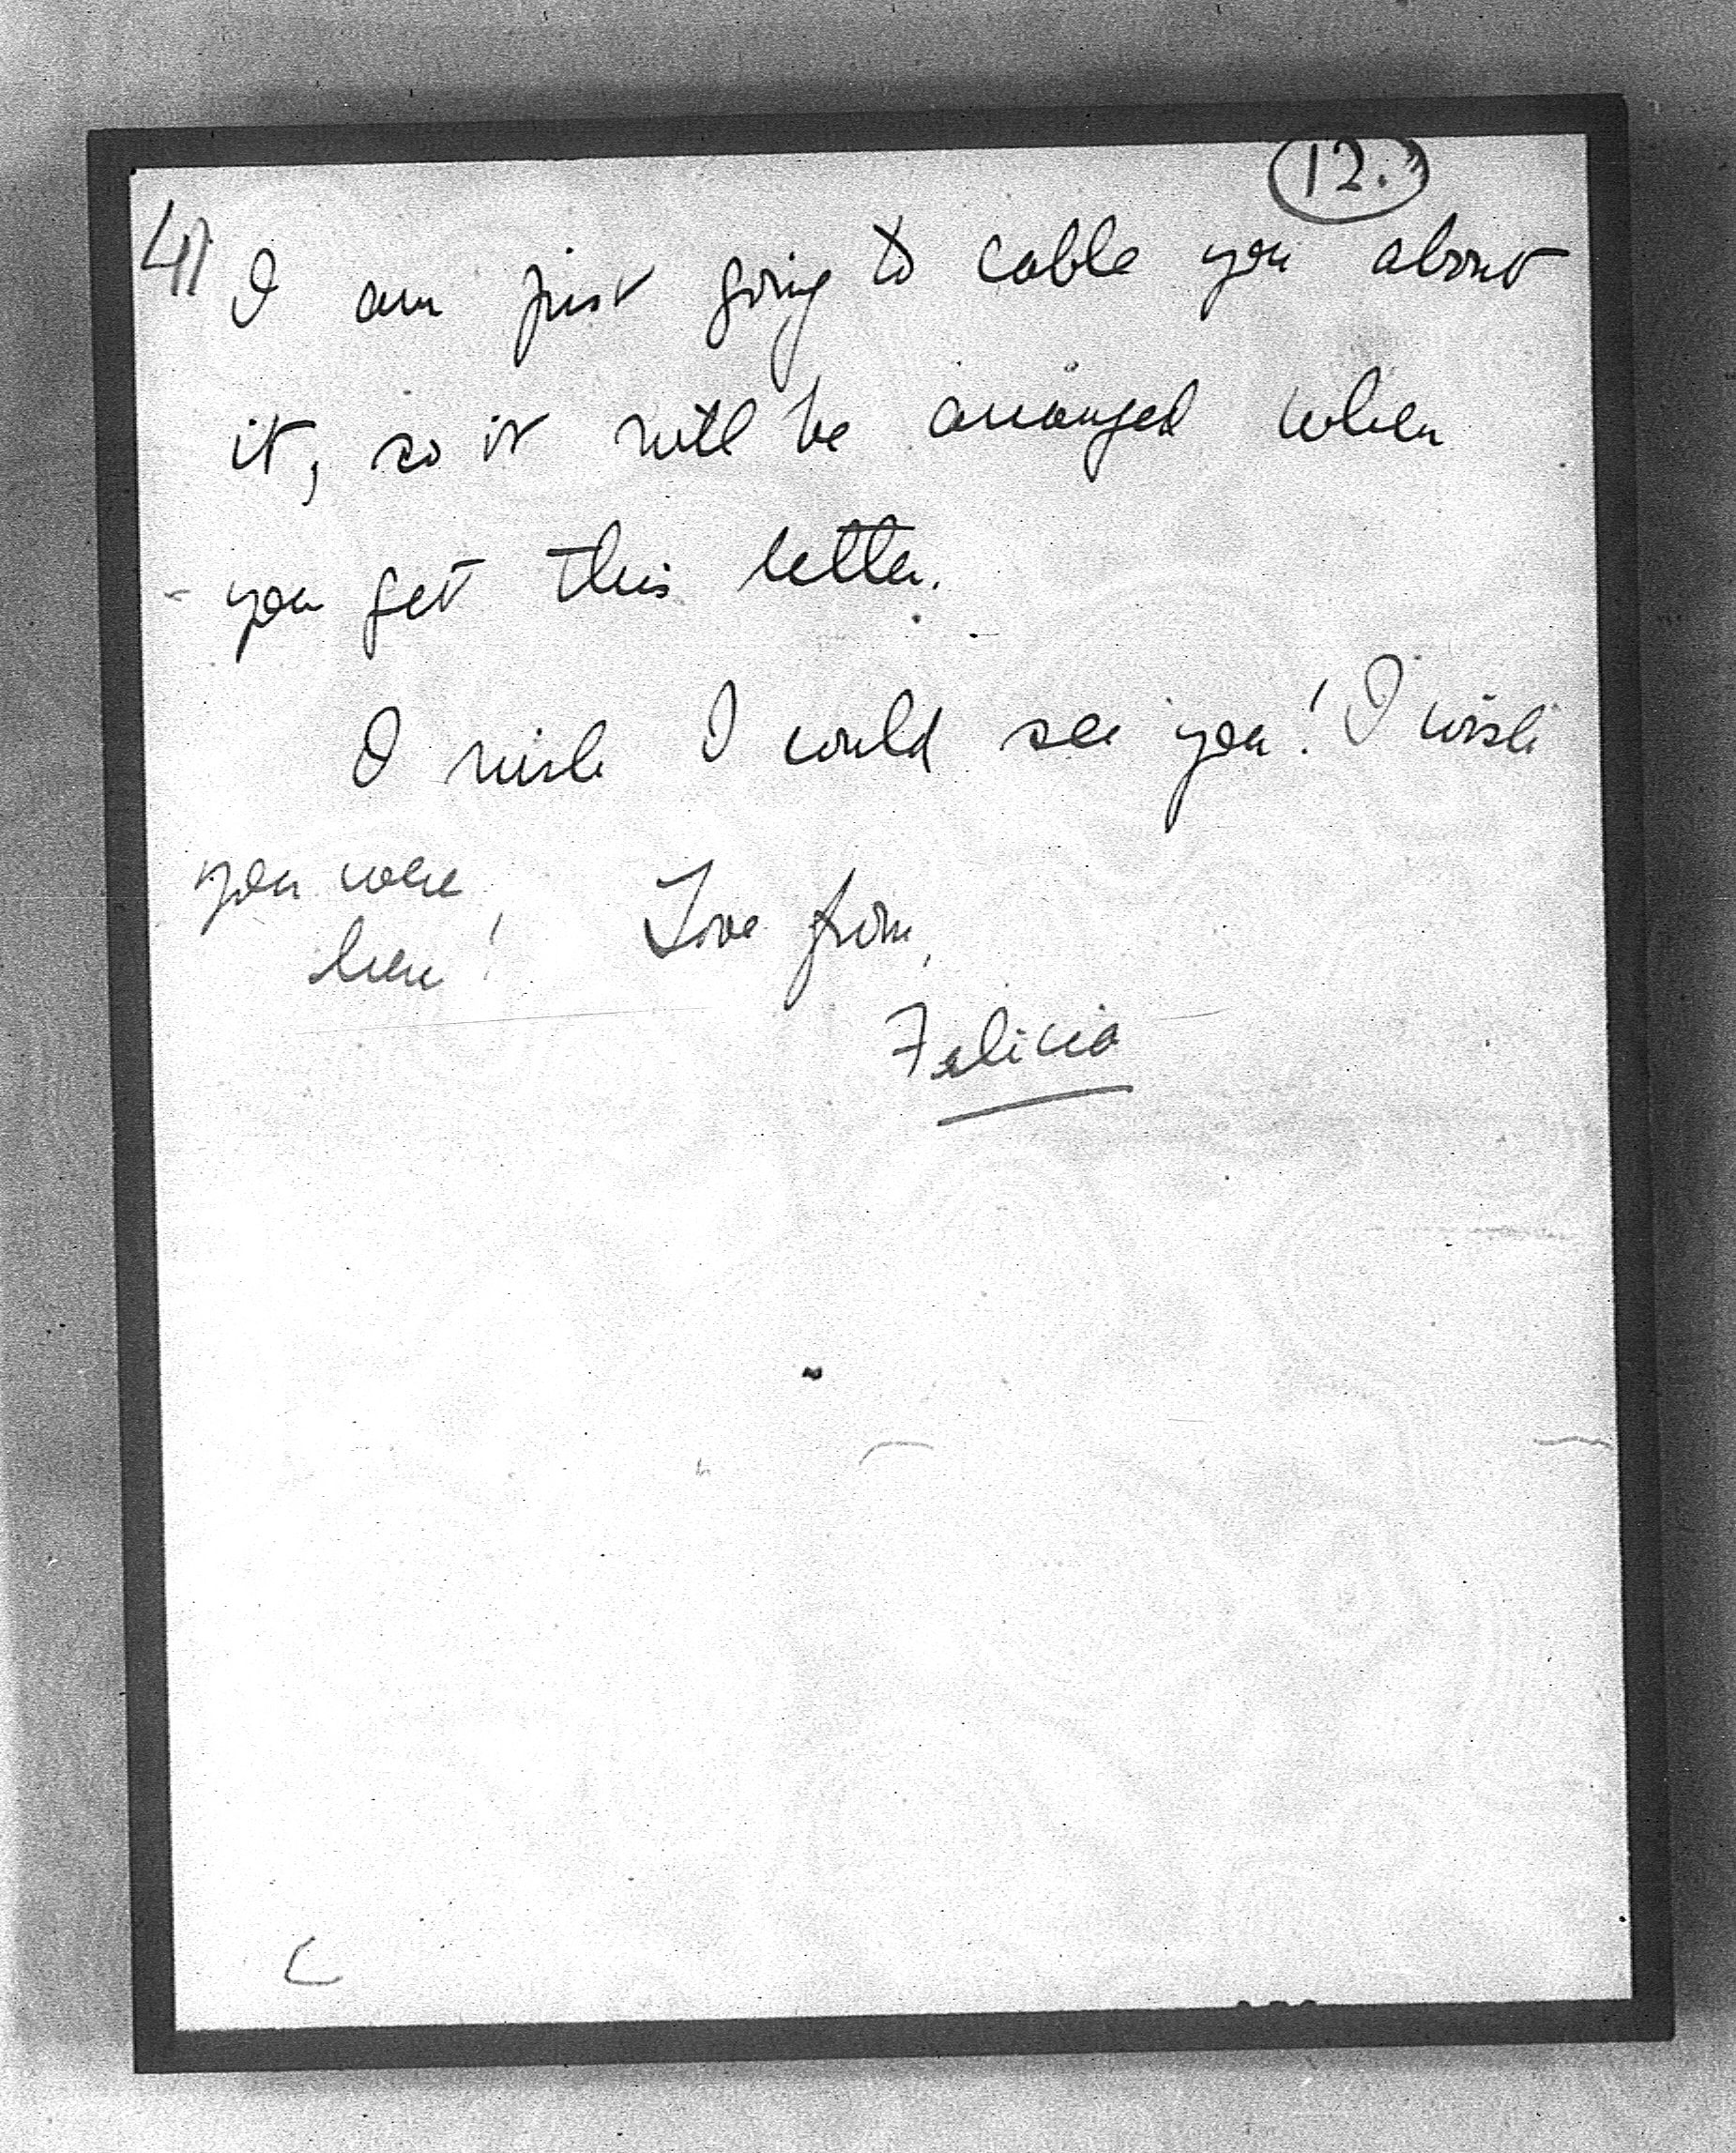 12.
4) I am just going to cable you about
it, so it will be arranged when
you get this letter.
I wish I could see you! I wish
you were
here!
Love from,
Felicia